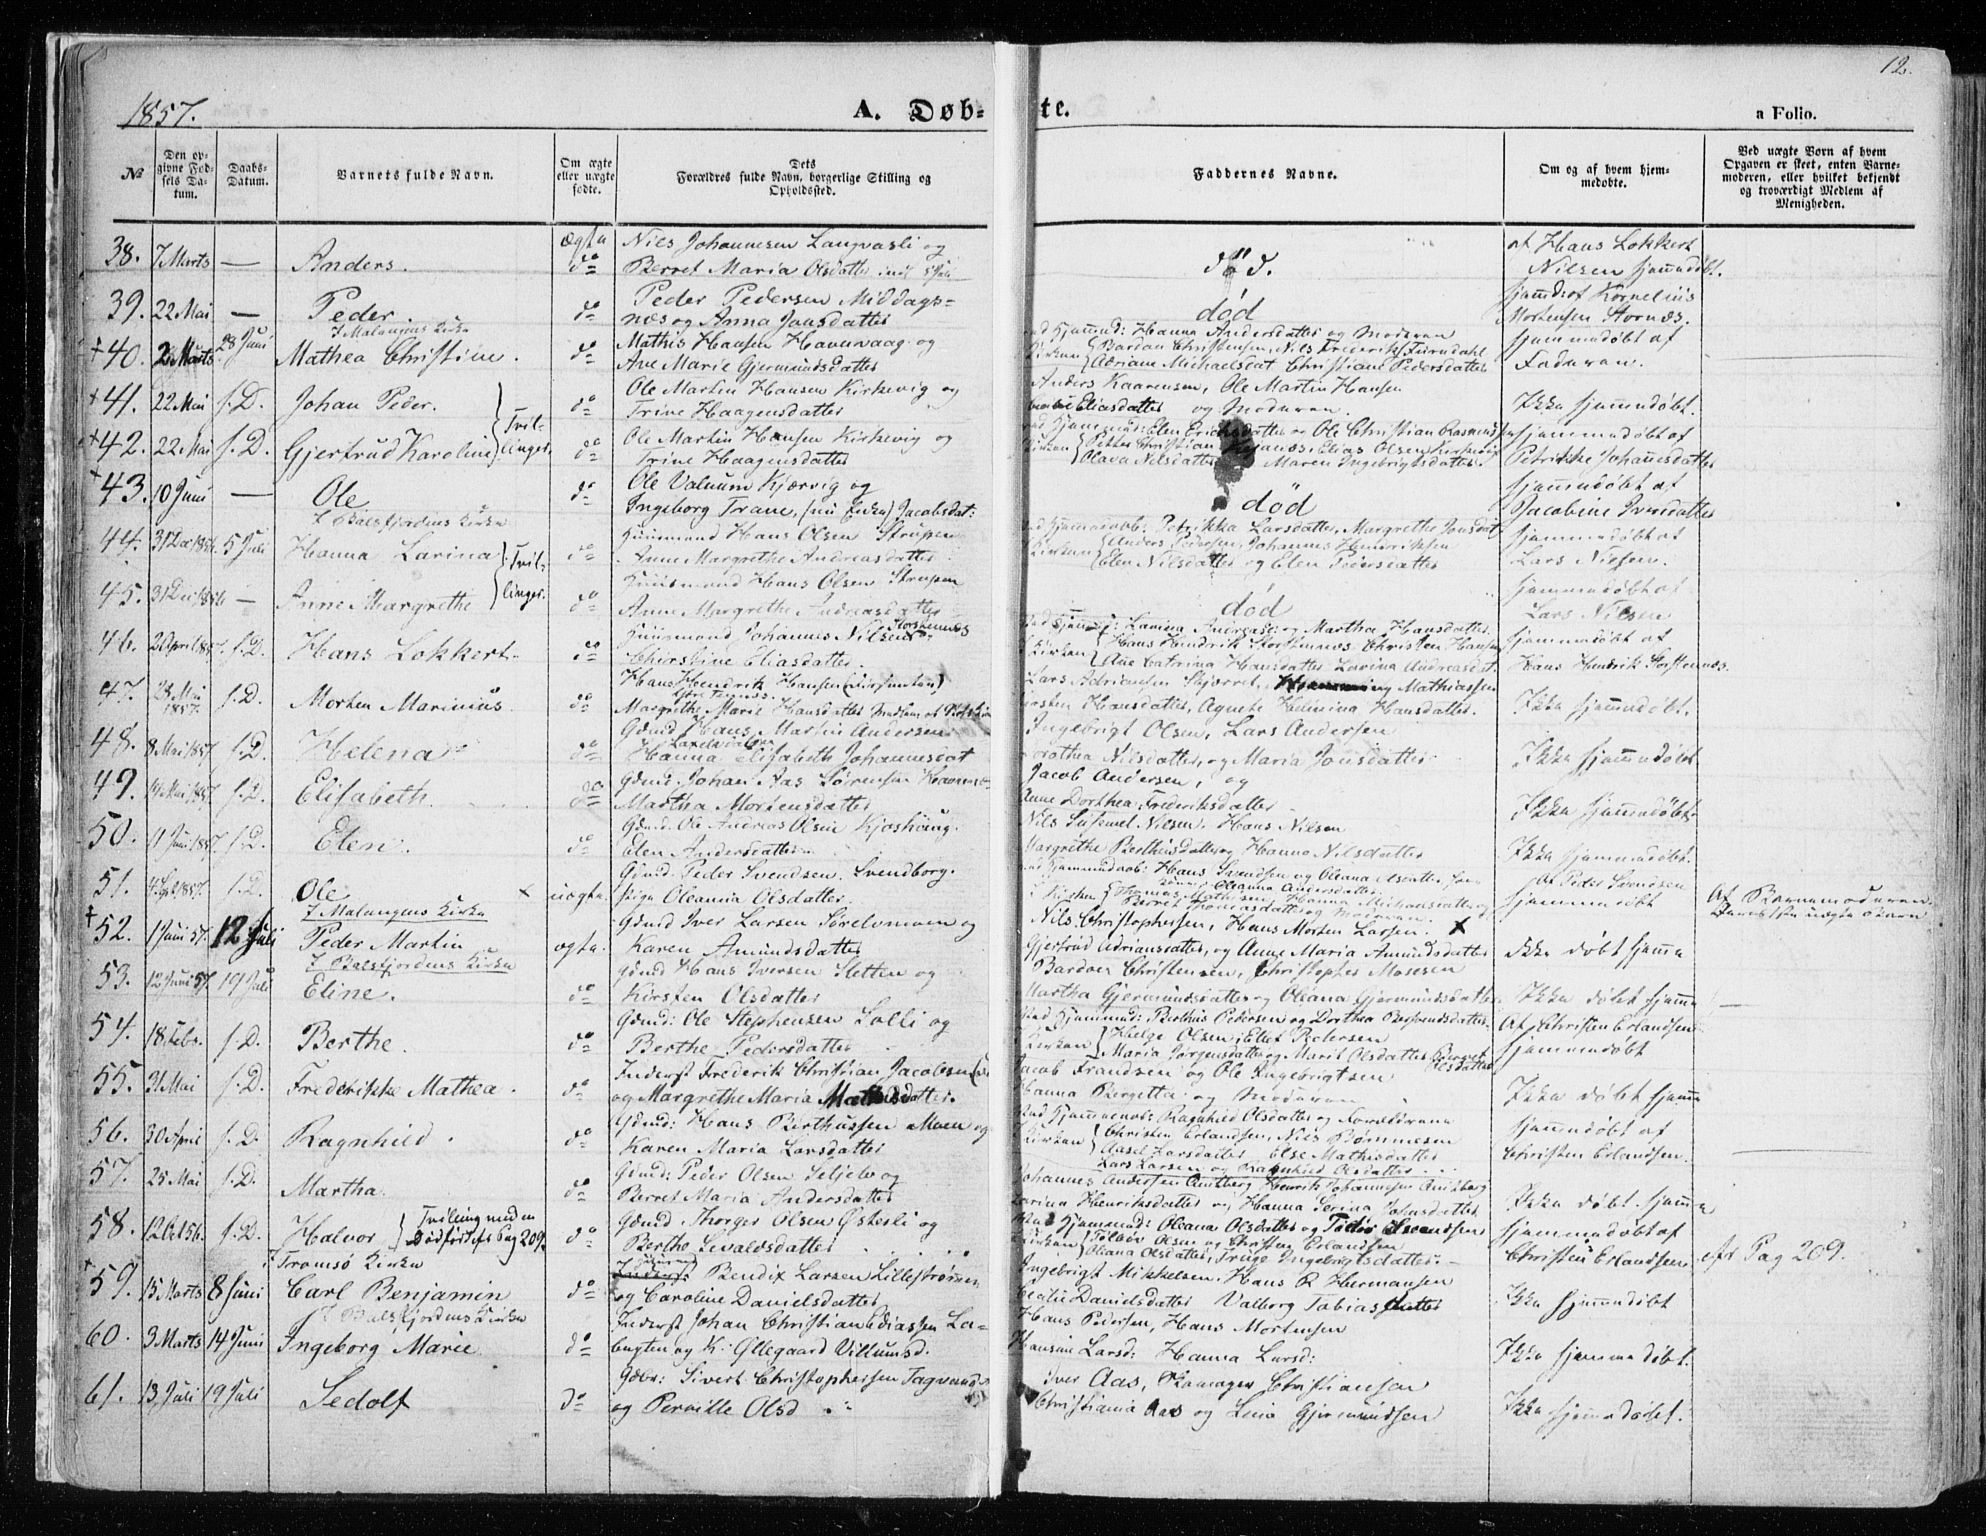 12.
1857.
A. Døb-
te.
a Folio.
№
Den op-
givne Fød-
sels Da-
tum.
Daabs-
Datum.
Barnets fulde Navn.
Om ægte
eller uægte
fødte.
Dets
Forældres fulde Navn, borgerlige Stilling og
Opholdssted.
Faddernes Navne.
Om og af hvem hjem-
medøbte.
Ved uægte Børn af hvem
Opgaven er skeet, enten Barne-
moderen, eller hvilket bekjendt
og troværdigt Medlem af
Menigheden.
38. 7 Marts — Anders. Ægte do
Nils Johannesen Langvasli og
Berret Maria Olsdatter
død.
af Hans Lokkert
Nilsen hjemmedøbt.
39. 22 Mai — Peder. do
Peder Pedersen Middags-
næs og Anna Jonsdatter
død
hjemdøbt af Kornelius
Mortensen Stornæs.
I Malangens Kirke
40. 2 Marts 28 Juni Mathea Christine. do
Mathis Hansen Havnvaag og
Ane Marie Gjermundsdatter
Hanna Andersdatter og Moderen
Bardon Christensen, Nils Frederik Furudahl
Adriane Michaelsdat Christiane Pedersdatter
hjemmedøbt af
Faderen.
41. 22 Mai s. D. Johan Peder. do
Tvil-
linger.
Ole Martin Hansen Kirkevig og
Trine Haagensdatter
Anders Kaarensen, Ole Martin Hansen
Eliasdatter og Moderen.
Ikke hjemmedøbt.
42. 22 Mai s. D. Gjertrud Karoline do
Ole Martin Hansen Kirkevig og
Trine Haagensdatter
Elen Erichsdatter og Ole Christian Rasmus
Petter Christian Elias Olsen Kirkevig
Olava Nilsdatter Maren Ingebrigtsdatter
hjemmedøbt af
Petrikke Johannesdatter
43. 10 Juni — Ole do
Ole Valnum Kjærvig og
Ingeborg Trane, Jacobsdat:
død
hjemmedøbt af
Jacobine Iversdatter
I Balsfjordens Kirke
44. 31 Dec 1856. 5 Juli Hanna Larina do
Tvil-
linger.
Huusmand Hans Olsen Strupen
Anne Margrethe Andreasdatter
Petrikke Larsdatter, Margrethe Jonsdat
Anders Pedersen, Johannes Hendriksen
Elen Nilsdatter og Elen Pedersdatter
hjemmedøbt af
Lars Nilsen.
45. 31 Dec 1856 — Anne Margrethe do
Huusmand Hans Olsen Strupen
Anne Margrethe Andreasdatter
død
hjemmedøbt af
Lars Nilsen
46. s. D. Hans Lokkert. do
Huusmand Johannes Nilsen Storstennæs
Christine Eliasdatter.
Lavina Andreasd: og Martha Hansdatter.
Hans Hendrik Storstennæs Christen Hansen
Ane Catrina Hansdatter Lavina Andreasdat.
hjemmedøbt af
Hans Hendrik Storstennæs.
47. 28 Mai 1857. s. D. Morten Marinius. do
Hans Hendrik Hansen
Margrethe Marie Hansdatter
Lars Adriansen Skjærret, Mathiassen
Hansdatter, Agnete Helmina Hansdatter.
Ikke hjemmedøbt.
48. 8 Mai 1857. s. D. Helena do
Gdmd. Hans Martin Andersen
Hanna Elisabeth Johannesdat
Ingebrigt Olsen, Lars Andersen
Dorothea Nilsdatter, og Maria Jonsdatter
Ikke hjemmedøbt
49. 14 Mai 1857. s. D. Elisabeth. do
Gdmd. Johan Aas Sørensen
Martha Mortensdatter
Jacob Andersen, og
Anne Dorthea Frederiksdatter
Ikke hjemmedøbt.
50. 11 Juni 1857. s. D. Elen. do
Gdmd. Ole Andreas Olsen Kjoshaug.
Elen Andersdatter
Nils Susemel Nilsen. Hans Nilsen
Margrethe Berthinsdatter og Hanna Nilsdatter
Ikke hjemmedøbt.
51. s. D. Ole × uægte
Gdmd. Peder Svendsen. Svendborg.
Pige Oleanna Olsdatter.
Hans Svendsen og Oleana
Oleanna Andersdatter.
Thomas Mathisen, Hanna Michaelsdatter
Berret Thomasdatter og Moderen.
af Peter Svendsen
hjemmedøbt
Af Barnemoderen.
I Malangens Kirke
52. 1 Juni 57. 12 Juli Peder Martin ægte.
Gdmd Iver Larsen Sørelvmoen og
Karen Amundsdatter
Nils Christophersen, Hans Morten Larsen. ×
Gjertrud Adriansdatter, og Anne Maria Amundsdatter
Ikke døbt hjemme
I Balsfjordens Kirke
53. 12 Juni 57. 19 Juli Eline. do
Gdmd Hans Iversen Sletten og
Kirsten Olsdatter
Bardoer Christensen, Christopher Mosesen
Martha Gjermundsdatter og Oleana Gjermundsdatter
Ikke døbt hjemme
54. 18 Febr. s. D. Berthe. do
Gdmd: Ole Stephensen Solli og
Berthe Pedersdatter
Berthus Pedersen og Dorthea Berthinsdatter.
Helge Olsen, Ellef Pedersen
Maria Jørgensdatter og Marit Olsdatter Berret Olsdatter
Af Christen Erlandsen
hjemmedøbt
55. 31 Mai s. D. Frederikke Mathea. do
Inderst Frederik Christian Jacobsen
og Margrethe Maria Mathisdatter.
Jacob Frandsen og Ole Ingebrigtsen
Hanna Bergetta og Moderen
Ikke døbt hjemme
56. 30 April s. D. Ragnhild. do
Gdmd: Hans Berthussen Moen og
Karen Maria Larsdatter
Ragnhild Olsdatter og Forældrene
Christen Erlandsen, Nils Bømmesen
Aasel Larsdatter Else Mathisdatter
Lars Larsen og Ragnhild Olsdatter
hjemmedøbt af
Christen Erlandsen.
57. 25 Mai s. D. Martha. do
Gdmd: Peder Olsen Seljelv og
Berret Maria Andersdatter
Johannes Andersen Amtberg Henrik Johannesen Amtberg
Larina Henriksdatter og Hanna Serina Johnsdatter
Ikke døbt hjemme
58. 12 Oct 56. s. D. Halvor do
Tvilling med en
Dødfødt cfr Pag 209.
Gdmd Thorger Olsen Østerli og
Berthe Sevaldsdatter
Oleana Olsdatter og Peder Svendsen
Tollev Olsen og Christen Erlandsen
Oliana Olsdatter, Truge Ingebrigtsdatter.
hjemmedøbt af
Christen Erlandsen
cfr Pag 209.
Tromsø Kirke
59. 15 Marts 8 Juni Carl Benjamin do
Bendix Larsen Lillestrømen
og Caroline Danielsdatter
Ingebrigt Mikkelsen, Hans R Hermansen
Danielsdatter Valborg Tobiasdatter
Ikke hjemmedøbt
I Balsfjordens Kirke
60. 3 Marts 14 Juni Ingeborg Marie do
Inderst Johan Christian Ediassen La-
bugten og K: Øllegaard Villumsd.
Hans Pedersen, Hans Mortensen
Hansine Larsd: Hanna Larsd:
Ikke hjemmedøbt.
61. 13 Juli 19 Juli Sedolf do
Gdbr: Sivert Christophersen Tagvund
og Pernille Olsd.
Iver Aas, Christiansen
Christiania Aas og Lina Gjermundsen
Ikke hjemmedøbt.